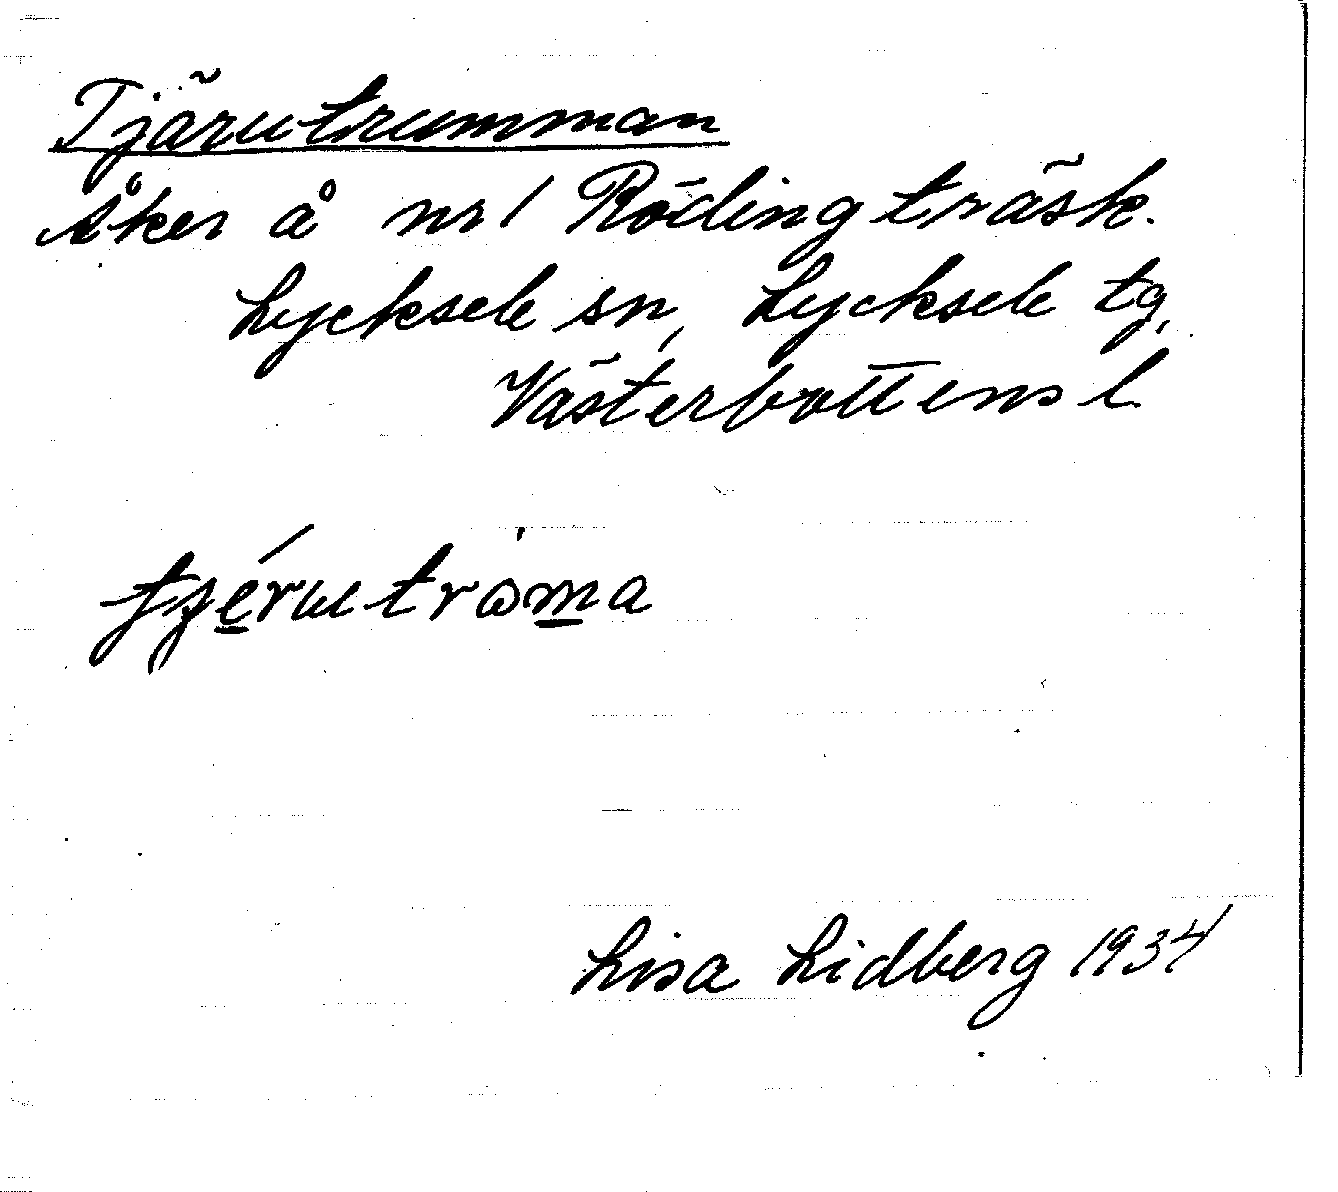 Tjärutrumman
Åker å nr 1 Rödingträsk.
Lycksele sn, Lycksele tg,
Västerbottens l
Lisa Lidberg 1934